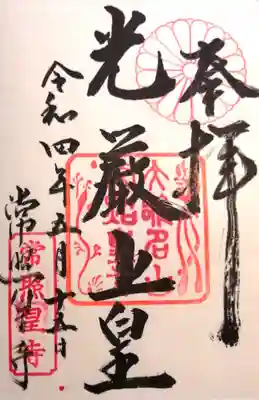 奉拝
光厳上皇
令和四年五月十五日
常照皇寺
常照皇寺